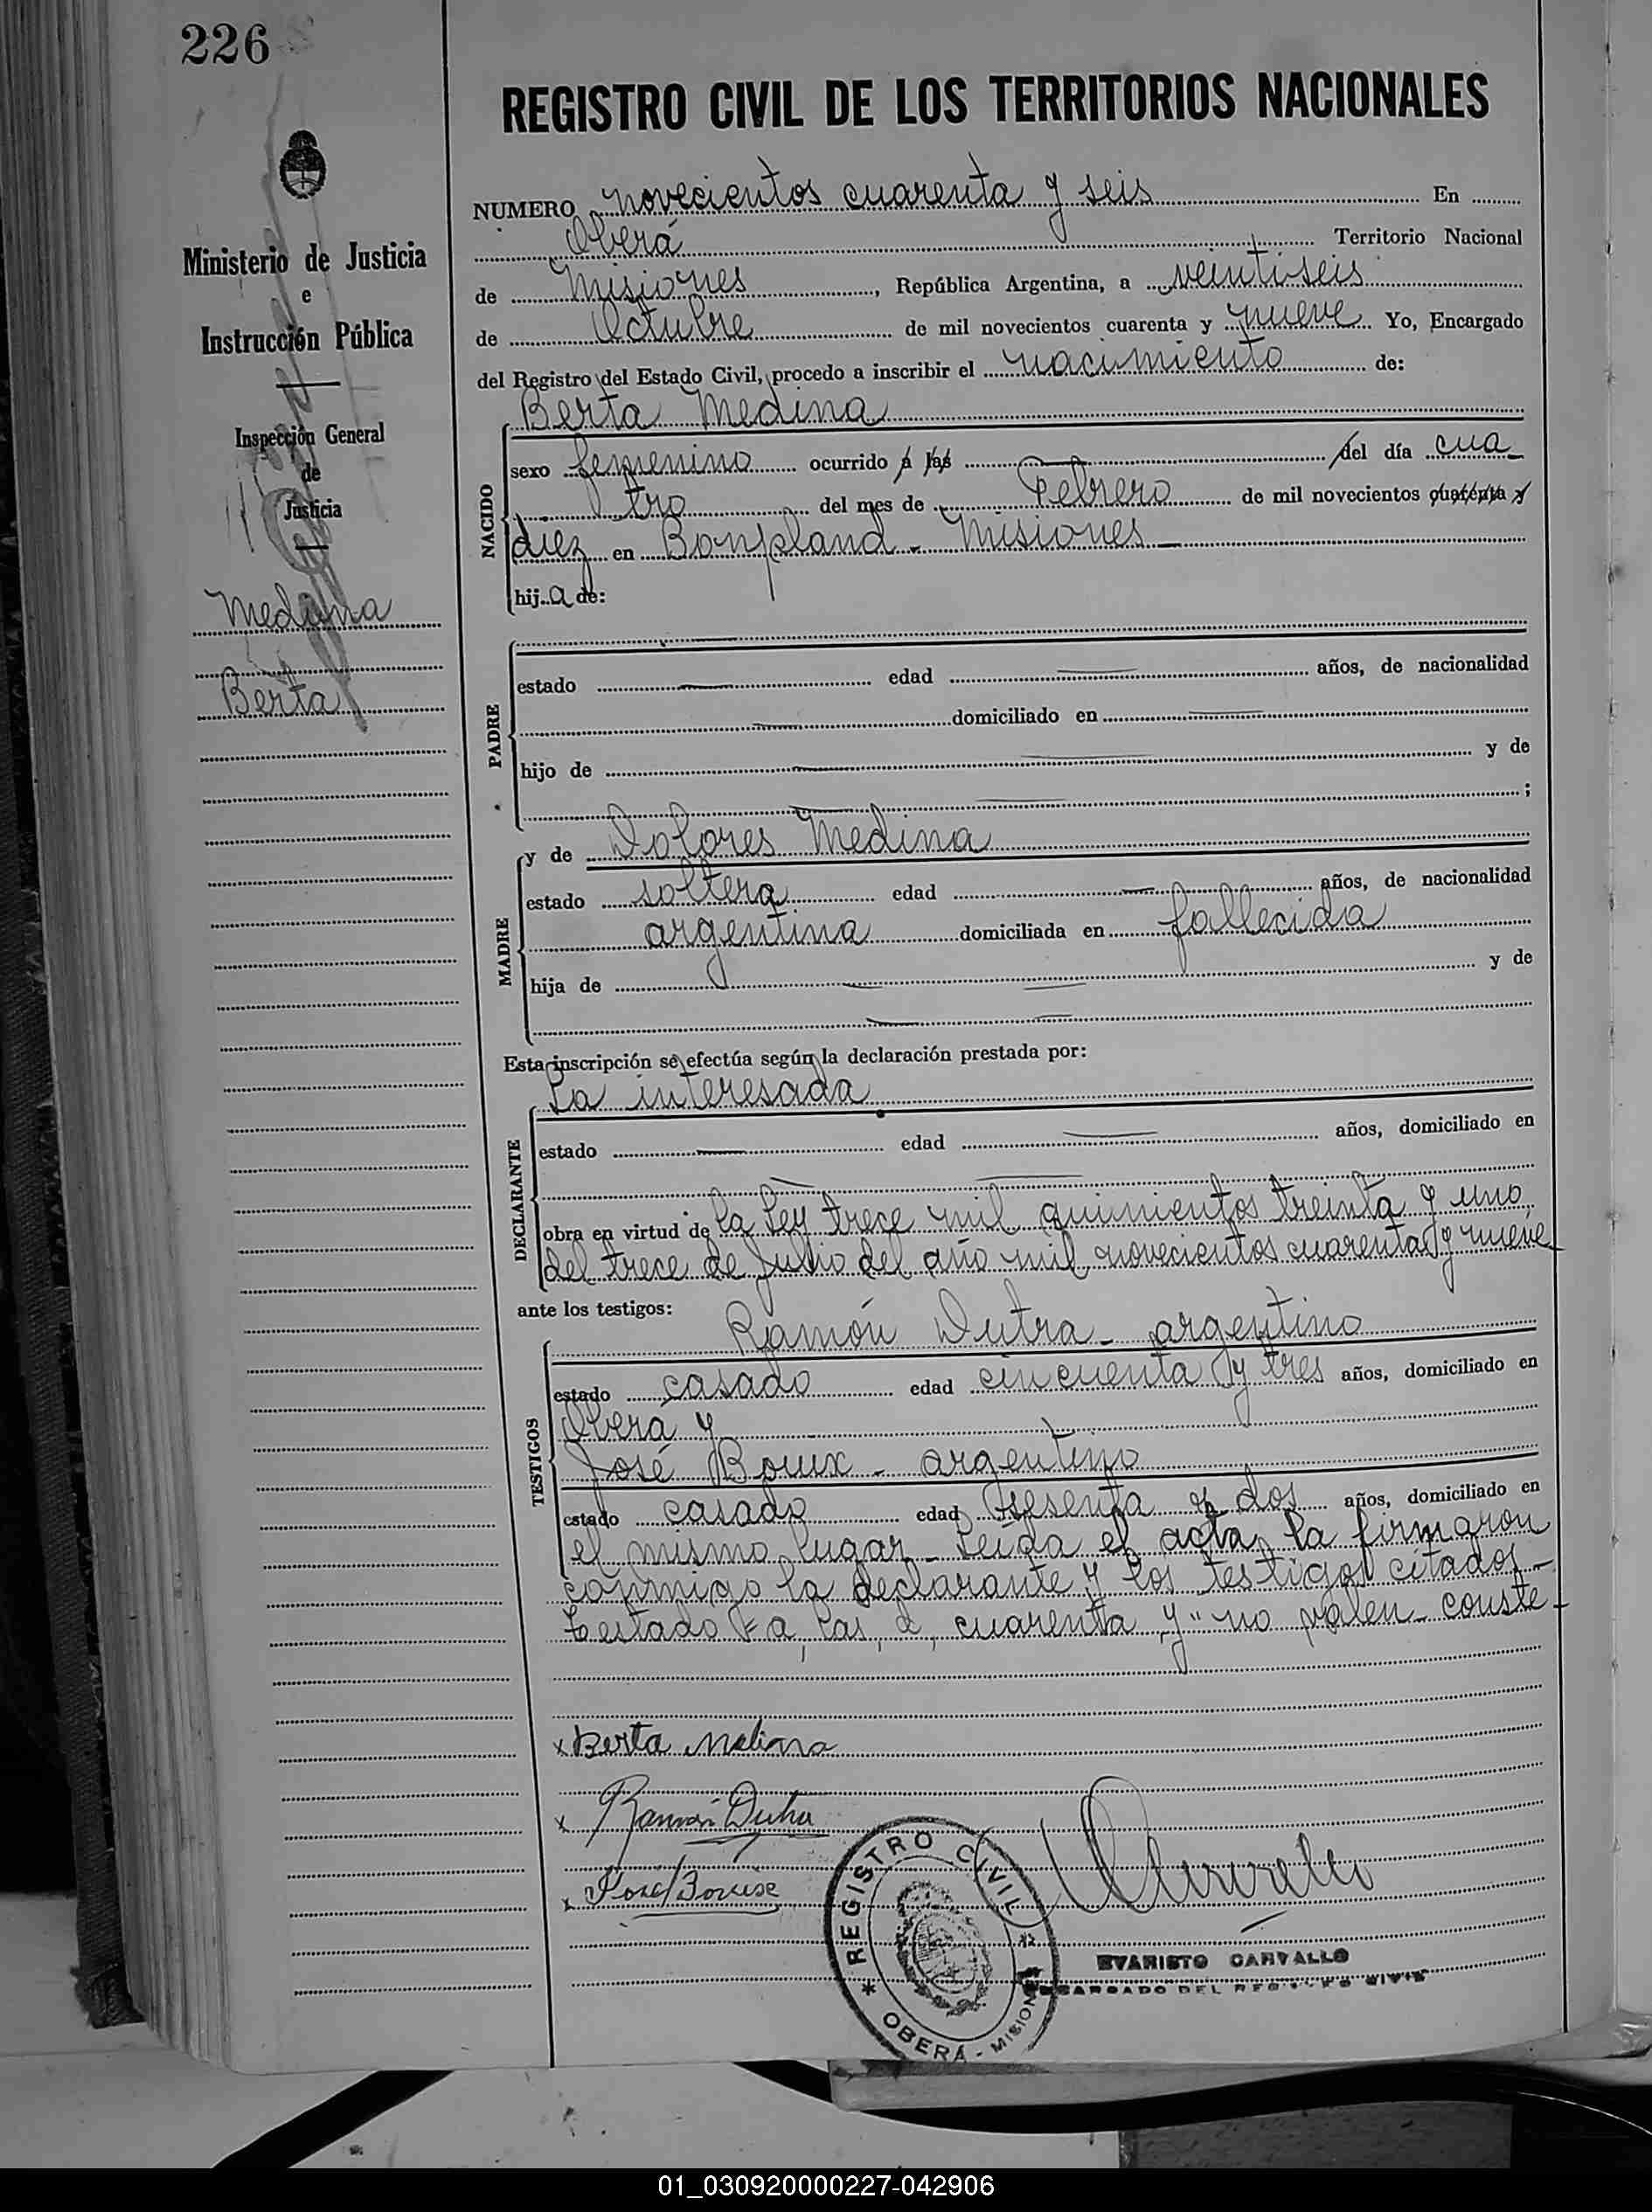 226
REGISTRO CIVIL DE LOS TERRITORIOS NACIONALES
Ministerio de Justicia
e
Instrucción Pública
Inspección General
de
Justicia
Medina
Berta
NUMERO novecientos cuarenta y seis En
Oberá Territorio Nacional
de Misiones, República Argentina, a veintiseis
de Octubre de mil novecientos cuarenta y nueve Yo, Encargado
del Registro del Estado Civil, procedo a inscribir el nacimiento de:
Berta Medina
NACIDO
sexo femenino ocurrido á las del día cua
tro del mes de Febrero de mil novecientos cuarenta y
diez en Bonpland - Misiones
hija de:
PADRE
estado edad años, de nacionalidad
domiciliado en
hijo de y de
;
MADRE
y de Dolores Medina
estado soltera edad años, de nacionalidad
argentina domiciliada en fallecida
hija de y de
Esta inscripción se efectúa según la declaración prestada por:
La interesada
DECLARANTE
estado edad años, domiciliado en
obra en virtud de la ley trece mil quinientos treinta y uno
del trece de Julio del año mil novecientos cuarenta y nueve
ante los testigos:
TESTIGOS
Ramón Dutra - argentino
estado casado edad cincuenta y tres años, domiciliado en
Oberá y
José - argentino
estado casado edad sesenta y dos años, domiciliado en
el mismo lugar - Leída el acta, la firmaron
conmigo la declarante y los testigos citados -
Testado a, las, d, cuarenta y" no valen - conste -
x Berta Medina
x Ramón Dutra
x José
REGISTRO CIVIL
OBERÁ - MISIONES
EVARISTO CARVALLO
ENCARGADO DEL REGISTRO CIVIL
01_030920000227-042906